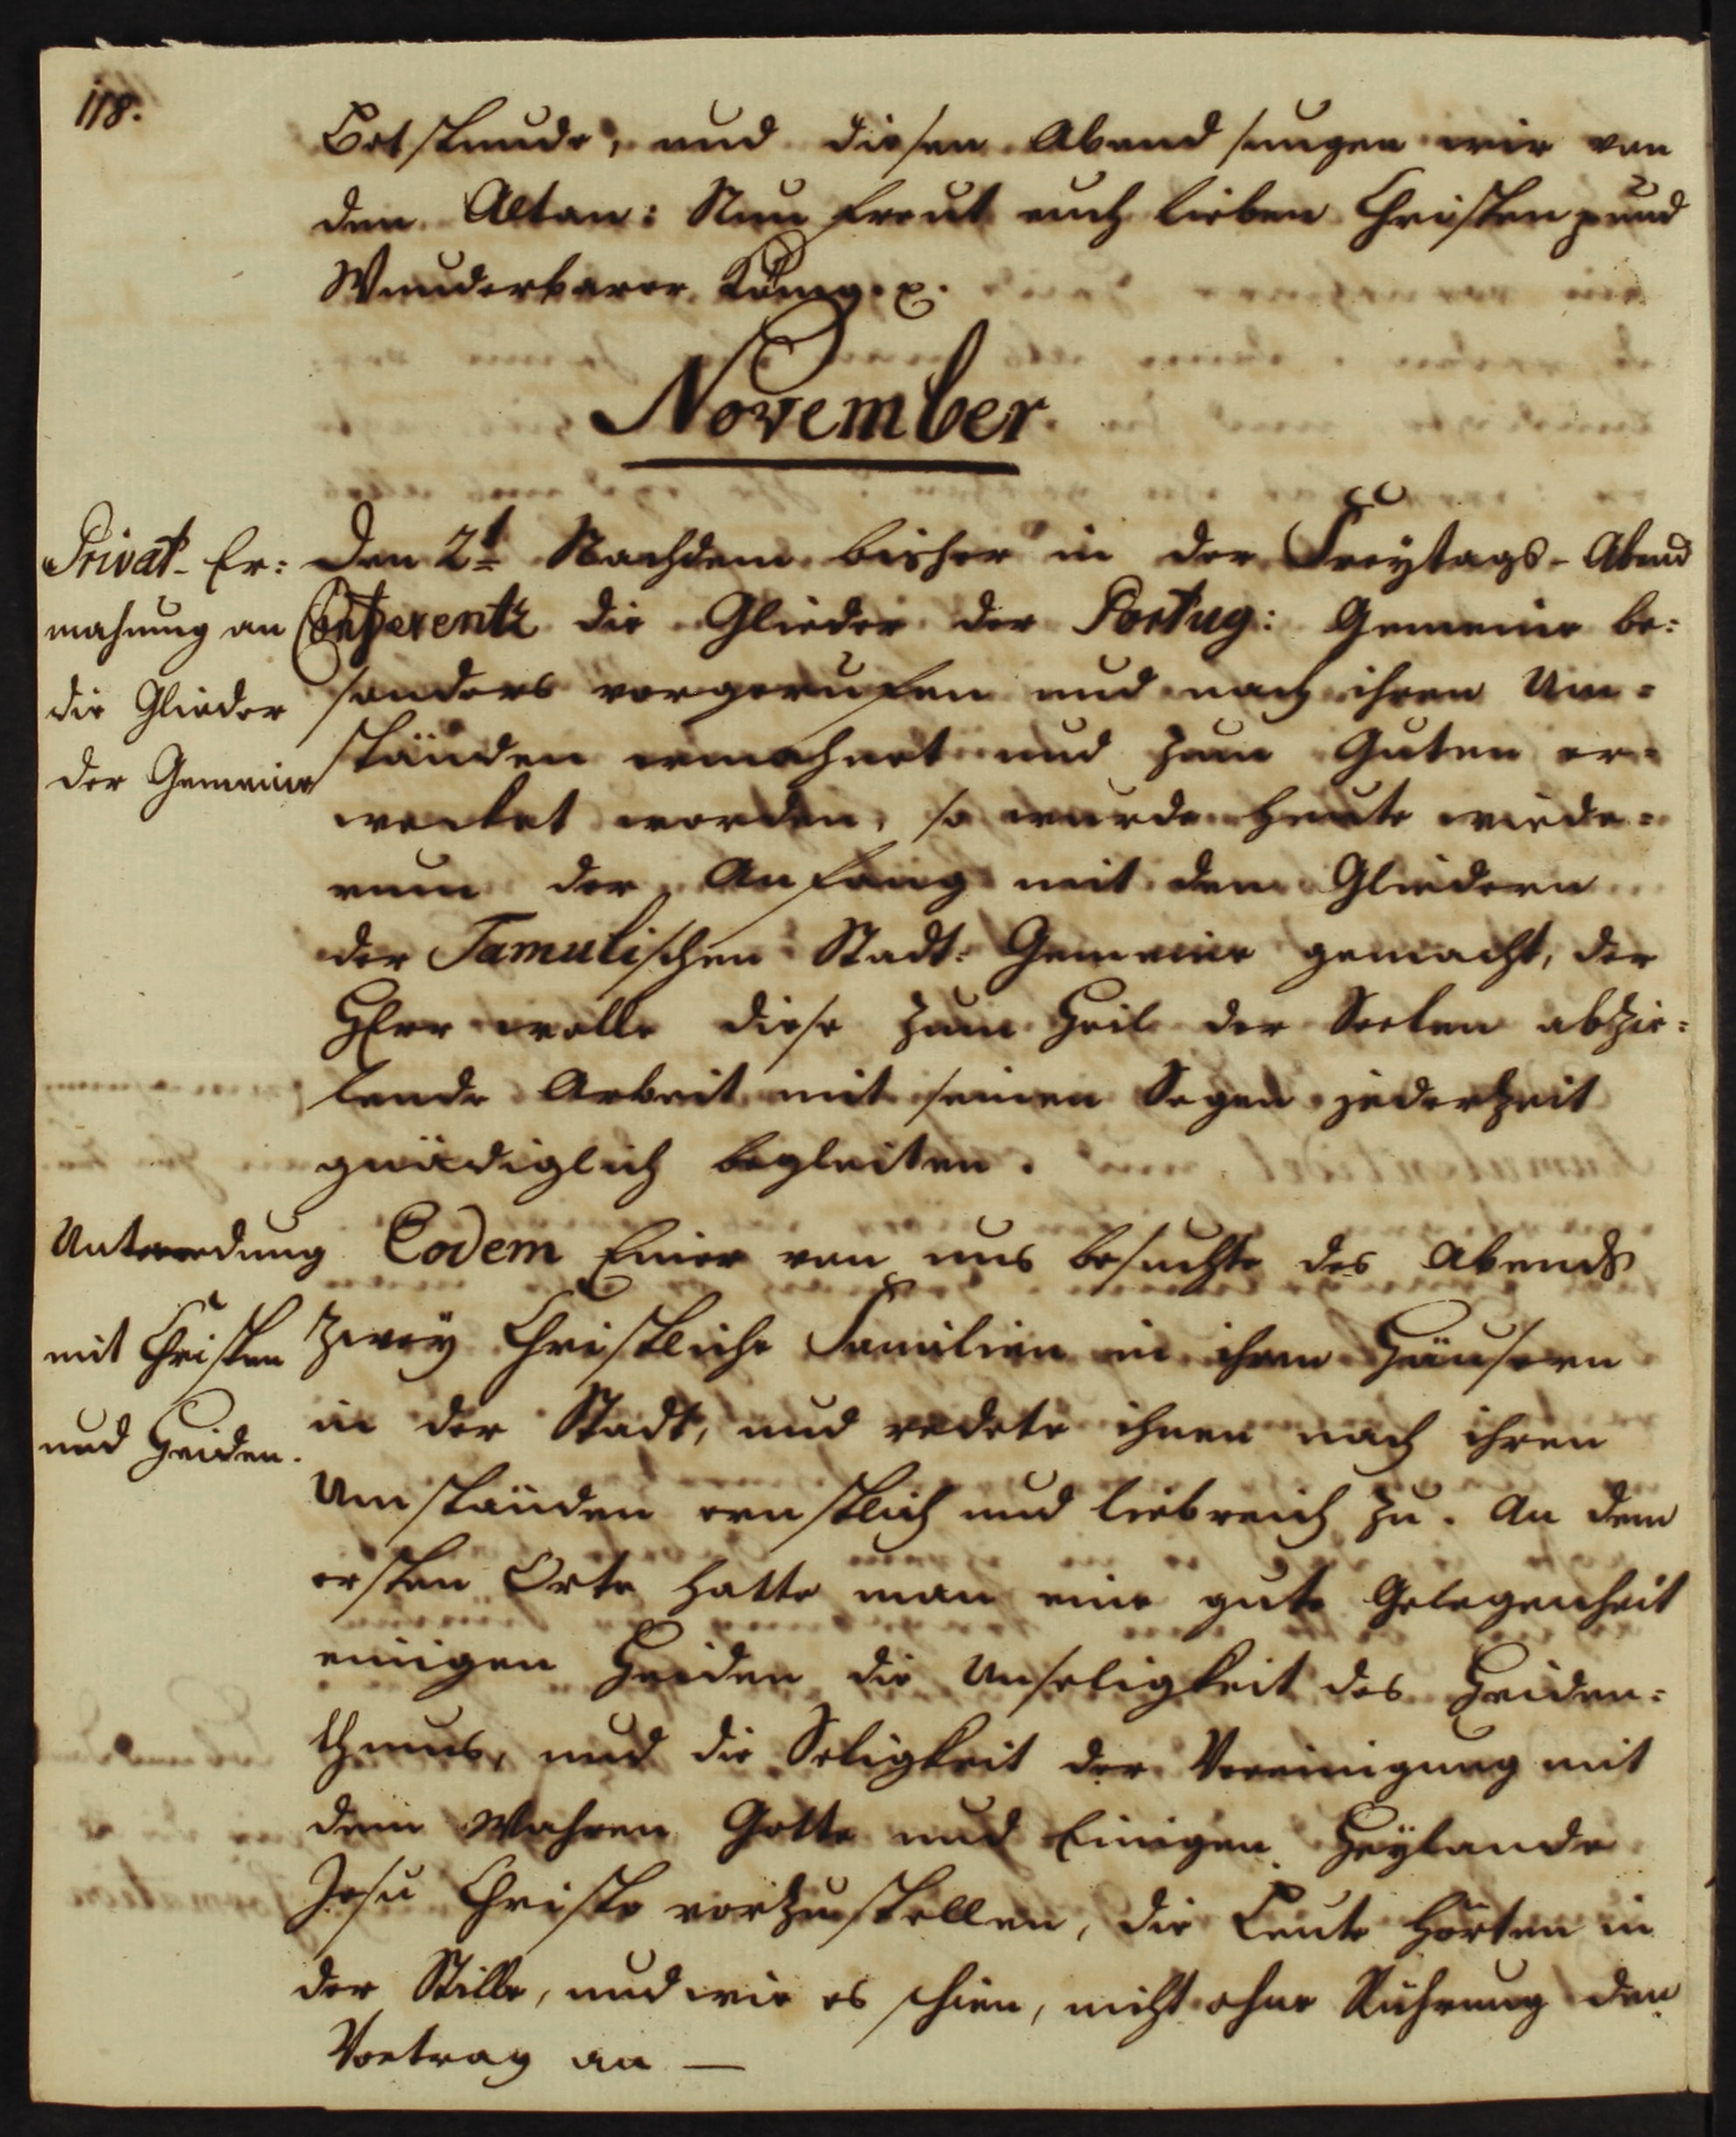 118.
Betstunde, und diesen Abend sungen wir von
den Altan: Nun freut euch lieben Christen p und
Wunderbarer König. p.
November
Privat-Er:
mahnung an
die Glieder
der Gemeine
Den 2t Nachdem bisher in der Freytags-Abend
Conferentz die Glieder der Portug: Gemeine be:
sonders vorgerufen und nach ihren Um=
ständen ermahnet und zum Guten er=
wecket worden, so wurde heute wiede=
rum der Anfang mit den Gliedern
der Tamulischen Stadt: Gemeine gemacht, der
HErr wolle diese zum Heil der Seelen abzie=
lende Arbeit mit seinen Segen jederzeit
gnädiglich begleiten.
Unterredung
mit Christen
und Heiden.
Eodem Einer von uns besuchte des Abends
zwey Christliche Familien in ihren Häusern
in der Stadt, und redete ihnen nach ihren
Umständen ernstlich und liebreich zu. An dem
ersten Orte hatte man eine gute Gelegenheit
einigen Heiden die Unseligkeit des Heiden=
thums, und die Seligkeit der Vereinigung mit
dem Wahren Gotte und Einigen Heylande
Jesu Christo vorzustellen, die Leute hörten in
der Stille, und wie es schien, nicht ohne Rührung den
Vortrag an —